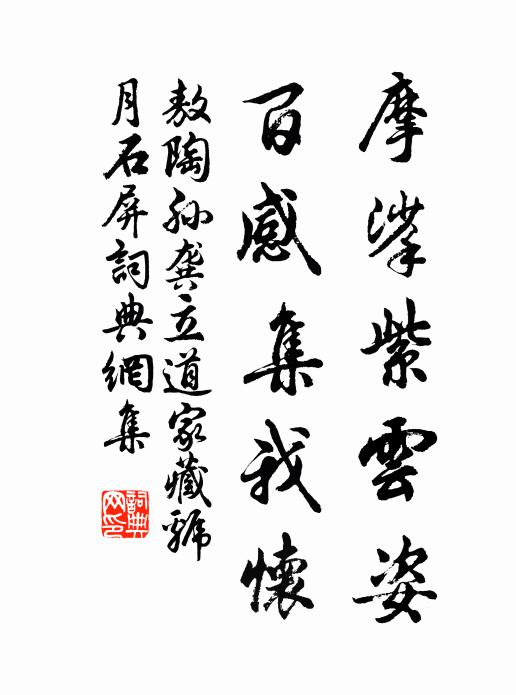 摩挲紫雲姿
百感集我懷
敖陶孫龔立道家藏號
月石屏詞典網集
詞典
网印